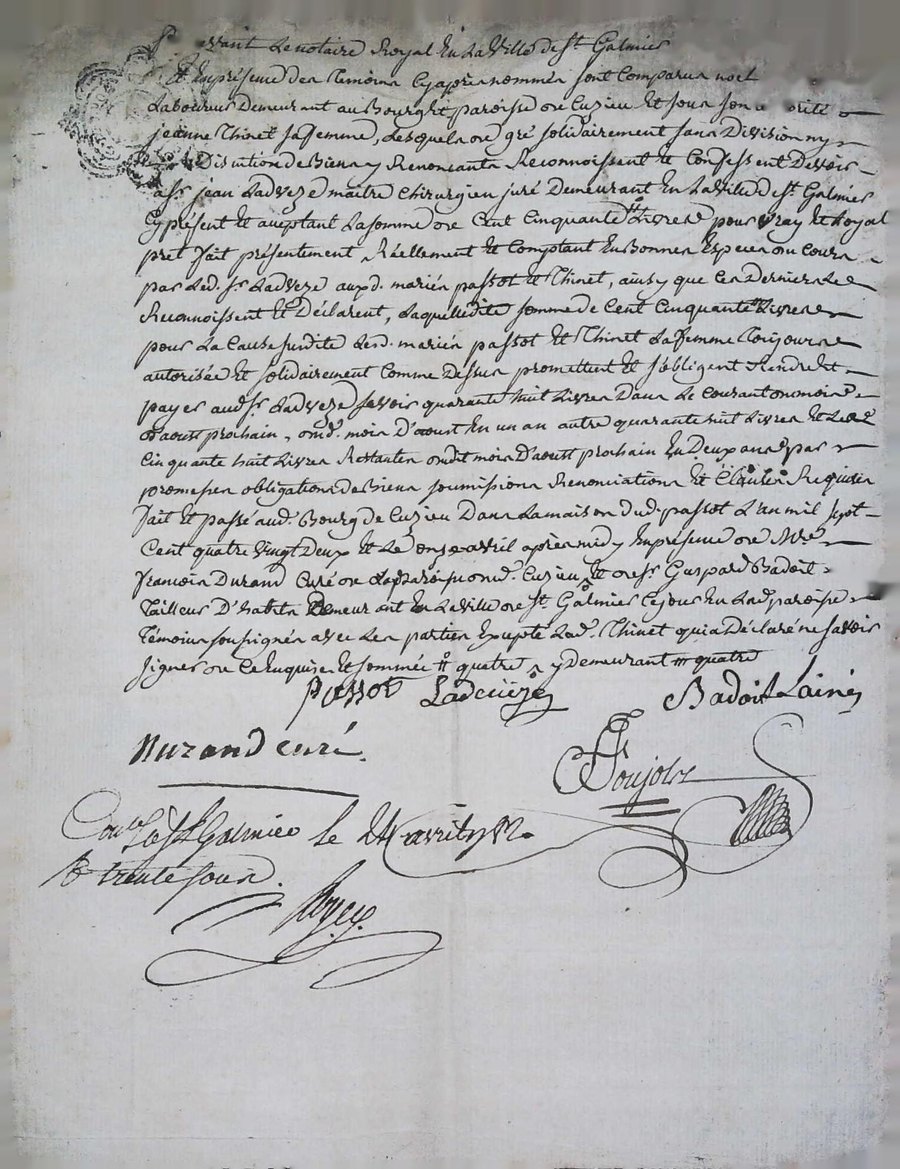 vant Le notaire Royal En La Ville de St Galmier
Et En présence des temoins Cy après nommés sont Comparus noel
Laboureur Demeurant au Bourg Et paroisse de Cuzieu Et sous son torité
jeanne Thinet sa femme, Lesquels de gré solidairement sans Division ny
Discution de Biens y Renoncants Reconnoissent Et Confessent Devoir
a sr. jean Ladveze maitre Chirurgien juré Demeurant En La Ville de St. Galmier
Cy présent Et aceptant La somme de Cent Cinquante Livres pour Vray Et Loyal
pret fait présentement, Réellement Et Comptant En Bonnes Especes du Cours
par Led. Sr. Ladveze auxd. mariés passot Et Thinet, ainsy que Ces Derniers Le
Reconnoissent Et Déclarent, Laquelle dite somme de Cent Cinquante Livres
pour La Cause susdite Lesd. mariés passot Et Thinet La femme Toujours
autorisée Et solidairement Comme Dessus promettent Et s'obligent Rendre Et
payer aud. Sr. Ladveze savoir quarante huit Livres Dans Le Courant du mois
D'aoust prochain, aud. mois D'aoust En un an autre quarante huit Livres Et Les
Cinquante huit Livres Restantes audit mois D'aoust prochain En Deux ans par
promesses obligations de Biens soumissions Renonciations Et Clauses Requises
fait Et passé aud. Bourg de Cuzieu Dans La maison dud. passot L'an mil sept
Cent quatre Vingt Deux Et Le onze avril après midy En présence de Mre
françois Durand Curé de La paroisse dud. Cuzieu Et de sr. Gaspard Badoit
Tailleur D'habits Demeurant En La Ville de St. Galmier Ce jour En Lad. paroisse
Témoins soussignés avec Les parties Excepté Lad. Thinet qui a Déclaré ne savoir
signer de Ce Enquise Et sommée # quatre y Demeurant # quatre
Passot Ladeüeze Badoit Lainé
Durand curé.
Coujolz
Conlé à St Galmier le 24 avril 1782
R trente sous.